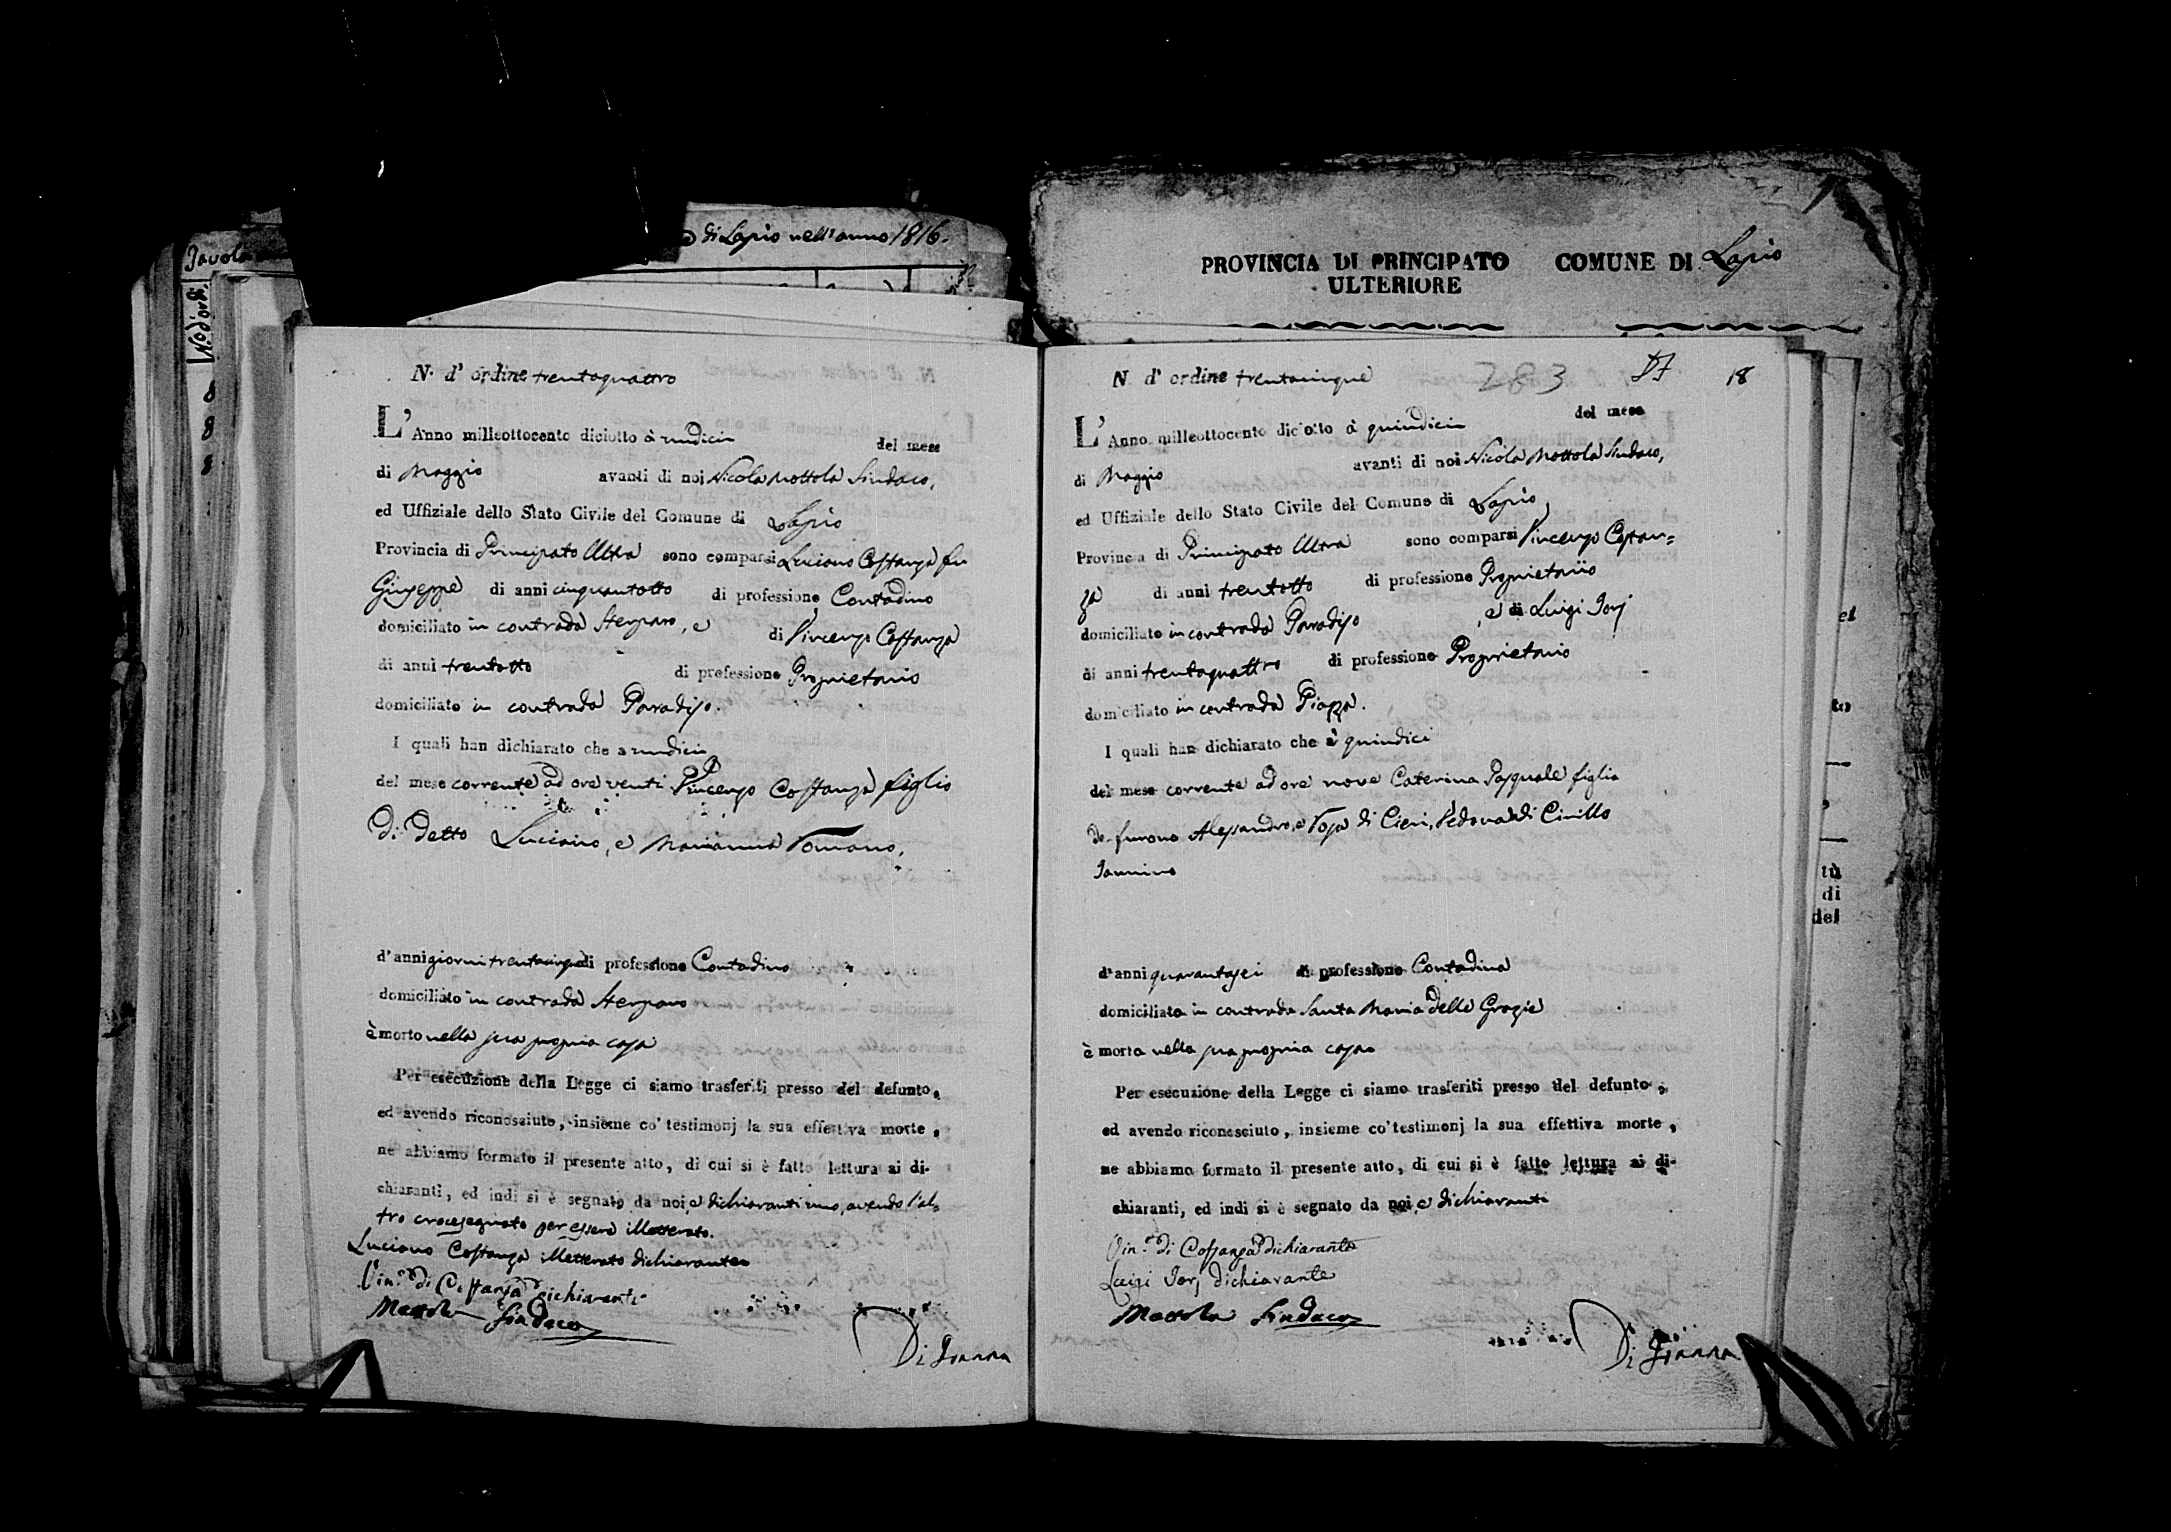 Tavola
di Lapio nell'anno 1816.
N.o d'ordi.
8
8
8
N. d' ordine trentaquattro
L'Anno milleottocento diciotto à undici del mese
di Maggio avanti di noi Nicola Mottola Sindaco,
ed Uffiziale dello Stato Civile del Comune di Lapio
Provincia di Principato Ultra sono comparsi Luciano Costanza fu
Giuseppe di anni cinquantotto di professione Contadino
domiciliato in contrada Sterparo, e di Vincenzo Costanza
di anni trentotto di professione Proprietario
domiciliato in contrada Paradiso.
I quali han dichiarato che a undici
del mese corrente ad ore venti Vincenzo Costanza figlio
di detto Luciano, e Marianna Romano,
d'anni giorni trentacinque di professione Contadino
domiciliato in contrada Sterparo
è morto nella sua propria casa
Per esecuzione della Legge ci siamo trasferiti presso del defunto,
ed avendo riconosciuto, insieme co' testimonj la sua effettiva morte,
ne abbiamo formato il presente atto, di cui si è fatto lettura ai di-
chiaranti, ed indi si è segnato da noi, e dichiaranti uno, avendo l'al=
tro crocesegnato per essere illetterato.
Luciano Costanza illetterato dichiarante
Vin.o di Costanza dichiarante
Mottola Sindaco
Di Joanna
PROVINCIA DI PRINCIPATO COMUNE DI Lapio
ULTERIORE
N d' ordine trentacinque 283 18
L'Anno milleottocento diciotto à quindici del mese
di Maggio avanti di noi Nicola Mottola Sindaco,
ed Uffiziale dello Stato Civile del Comune di Lapio,
Provincia di Principato Ultra sono comparsi Vincenzo Costan=
za di anni trentotto di professione Proprietario
domiciliato in contrada Paradiso, e di Luigi Jorj
di anni trentaquattro di professione Proprietario
domiciliato in contrada Piazza.
I quali han dichiarato che à quindici
del mese corrente ad ore nove Caterina Pasquale figlia
de furono Alessandro, e Rosa di Cieri, Vedova di Cirillo
Jannino
d'anni quarantasei di professione Contadina
domiciliata in contrada Santa Maria delle Grazie
è morta nella sua propria casa
Per esecuzione della Legge ci siamo trasferiti presso del defunto,
ed avendo riconosciuto, insieme co' testimonj la sua effettiva morte,
ne abbiamo formato il presente atto, di cui si è fatto lettura ai di-
chiaranti, ed indi si è segnato da noi, e dichiaranti
Vin.o di Costanza dichiarante
Luigi Jorj dichiarante
Mottola Sindaco
Di Joanna
to
tù
di
del